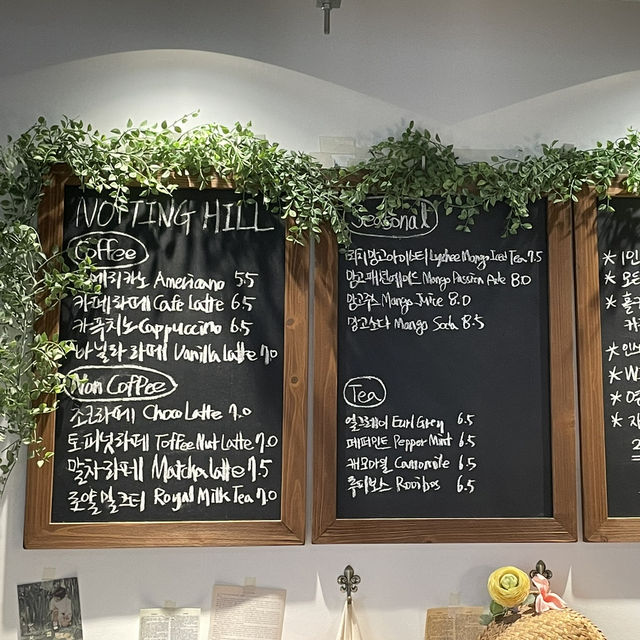 NOTTING HILL
Coffee
아메리카노 Americano 5.5
카페라떼 Cafe Latte 6.5
카푸치노 Cappuccino 6.5
바닐라 라떼 Vanilla Latte 7.0
Non Coffee
초코라떼 Choco Latte 7.0
토피넛라떼 Toffee Nut Latte 7.0
말차라떼 Matcha Latte 7.5
로얄밀크티 Royal Milk Tea 7.0
Seasonal
리치망고아이스티 Lychee Mango Iced Tea 7.5
망고패션에이드 Mango Passion Ade 8.0
망고주스 Mango Juice 8.0
망고소다 Mango Soda 8.5
Tea
얼그레이 Earl Grey 6.5
페퍼민트 Pepper Mint 6.5
캐모마일 Camomile 6.5
루이보스 Rooibos 6.5